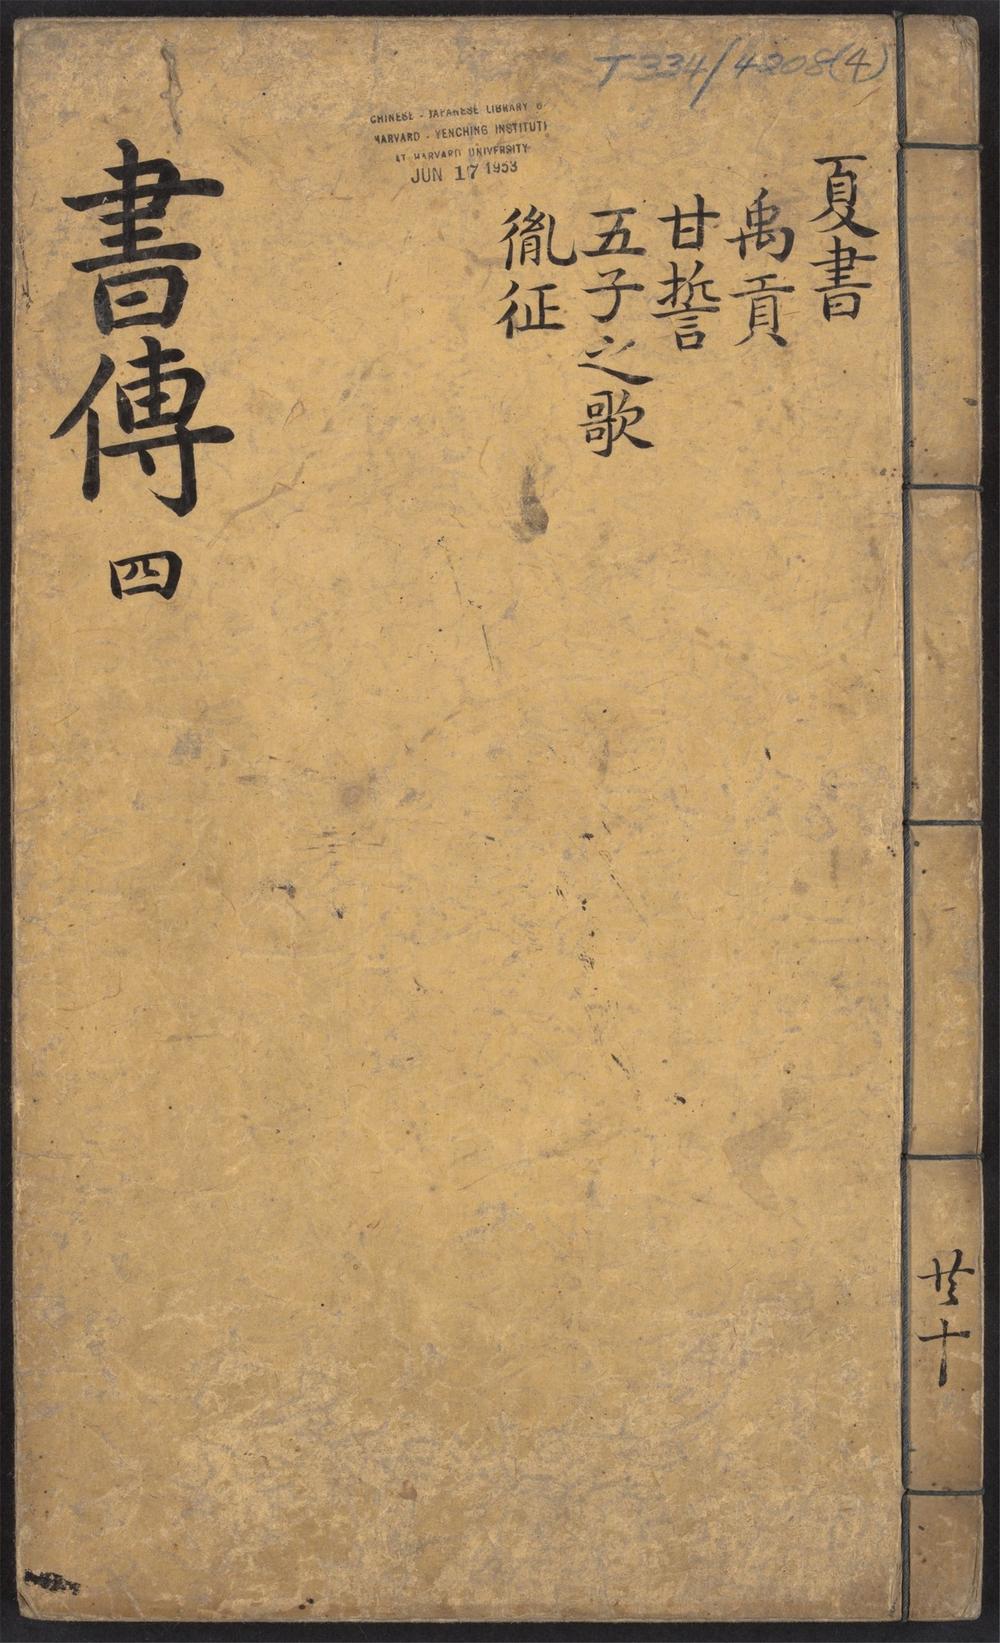 T334/4208(4)
CHINESE - JAPANESE LIBRARY O
HARVARD - YENCHING INSTITUTE
AT HARVARD UNIVERSITY
JUN 17 1953
夏書
禹貢
甘誓
五子之歌
胤征
書傳 四
共十